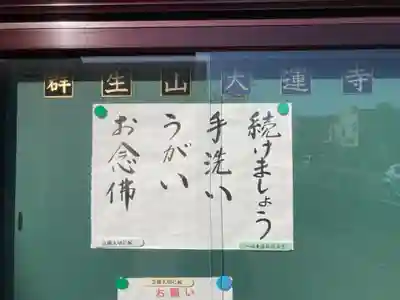 群生山大蓮寺
続けましょう
手洗い
うがい
お念佛
お願い